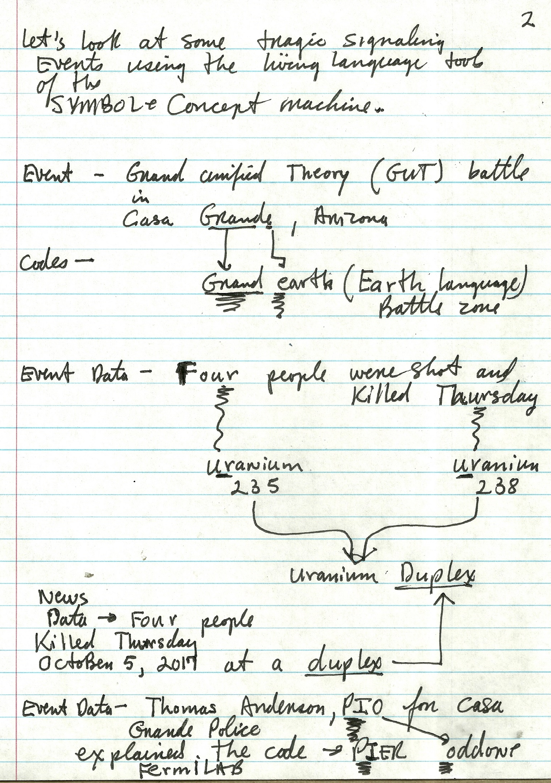 2
Let's look at some tragic signaling
Events using the living language tools
of the
SYMBOL+ Concept machine.
Event - Grand unified Theory (GUT) battle
in
Casa Grande, Arizona
Codes -
Grand earth (Earth language)
Battle zone
Event Data - Four people were shot and
Killed Thursday
uranium uranium
235 238
uranium Duplex
News
Data → Four people
Killed Thursday
OctoBer 5, 2017 at a duplex
Event Data - Thomas Anderson, PIO for Casa
Grande Police
explained the code → PIER oddone
FermiLAB